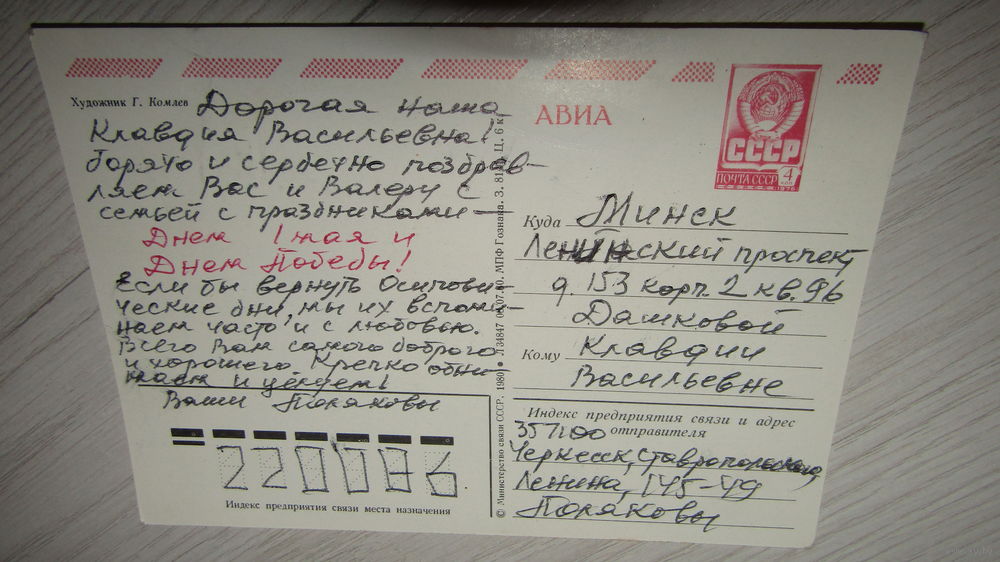 Художник Г. Комлев
Дорогая наша
Клавдия Васильевна!
Горячо и сердечно поздрав-
ляем Вас и Валеру с
семьей с праздниками —
Днем 1 мая и
Днем Победы!
Если бы вернуть Осипови-
ческие дни, мы их вспоми-
наем часто и с любовью.
Всего Вам самого доброго
и хорошего. Крепко обни-
маем и целуем!
Ваши Поляковы
Индекс предприятия связи места назначения
© Министерство связи СССР, 1980 • Л 34847 07.80. МПФ Гознака. З. Ц. 6 к.
АВИА
СССР
ПОЧТА СССР
4
КОП
1976
Куда Минск
Ленинский проспект
д. 153 корп. 2 кв. 96
Дашковой
Кому Клавдии
Васильевне
Индекс предприятия связи и адрес
отправителя
357100
Черкесск, Ставропольского,
Ленина, 145-49
Поляковы